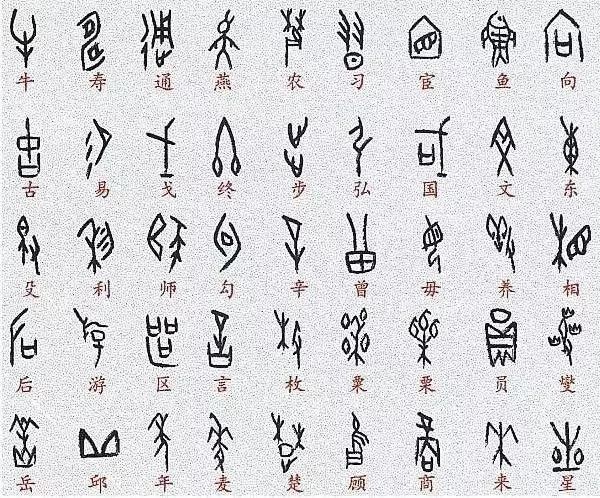 牛 寿 通 燕 农 习 宦 鱼 向
古 易 戈 终 步 弘 国 文 东
殳 利 师 勾 辛 曾 毋 养 相
后 游 区 言 枚 粟 栗 员 燮
岳 邱 年 麦 楚 顾 商 来 星